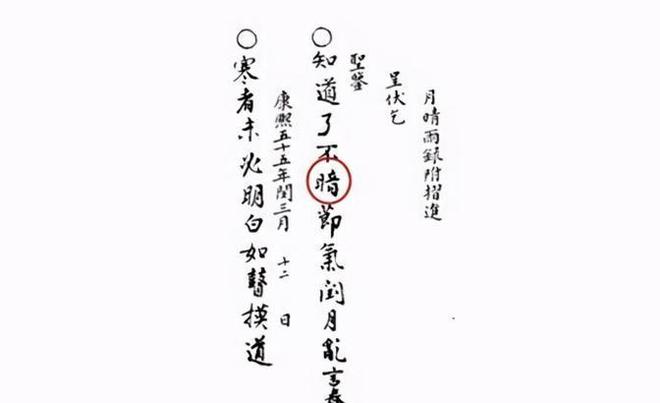 月晴雨錄附摺進
呈伏乞
聖鑒
○知道了不暗節氣閏月亂言春
康熙五十五年閏三月 十二 日
○寒者未必明白如瞽摸道